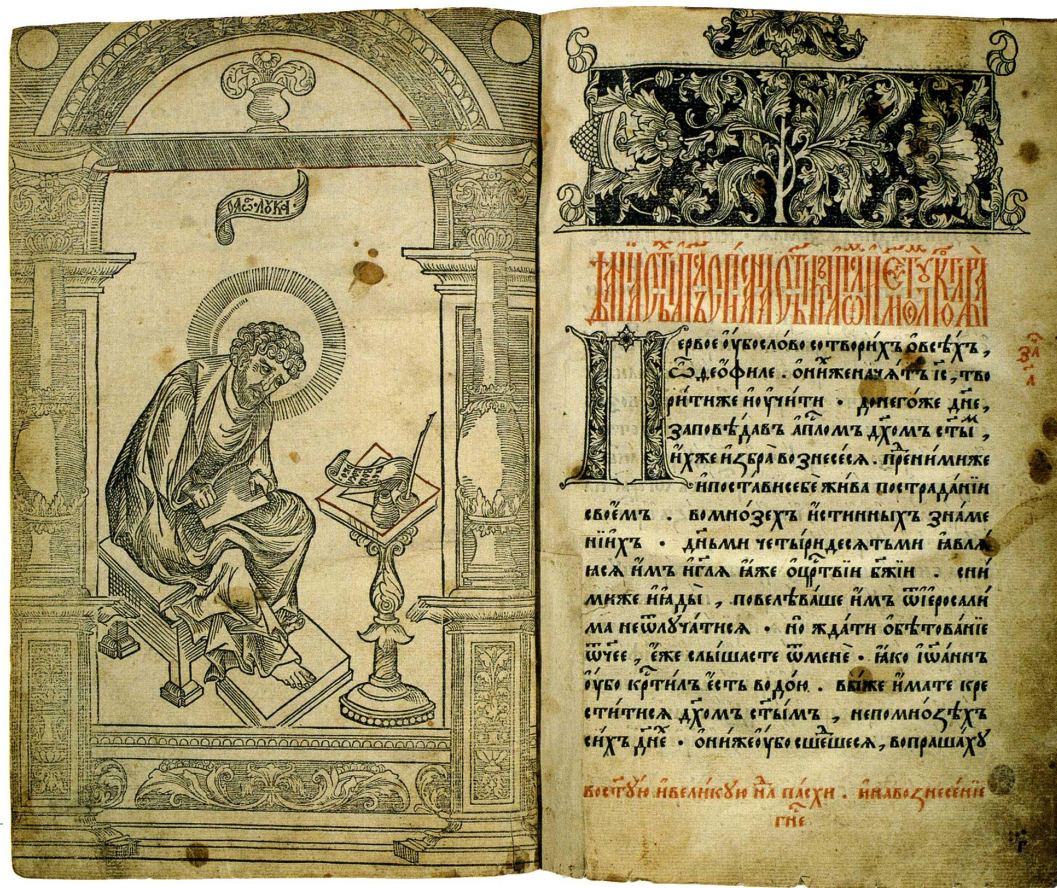 ЛУКА
Первое оу҆́бо сло́во сотвори́хъ ѻ҆ всѣ́хъ,
ѽ дѐофиле . ѻ҆ни́же нача́тъ і҆с҃, тво
ри́ти же и҆ оу҆чи́ти · до него́же дн҃е,
заповѣ́дав а҆пⷭ҇ломъ дх҃омъ ст҃ыⷨ ,
и҆́хже и҆збра̀ вознесе́сѧ . пред ни́миже
и҆ поста́ви себѐ жи́ва по страда́нїи
свое́мъ . во мно́зехъ и҆́стинныхъ зна́ме
нїи҆хъ · дн҃ьми четы́ридесѧтьми ꙗ҆влѧ́
ꙗсѧ и҆̀мъ и҆ гл҃ѧ ꙗ҆́же ѻ҆ црⷭ҇твїи бж҃їи . сни́
миже и҆ ꙗ҆ды̀ , повелѣва́ше и҆̀мъ ѿ і҆еросали́
ма не ѿлуча́тисѧ · но жда́ти ѻ҆бѣтова́нїе
ѿч҃ее , є҆́же слы́шасте ѿ менѐ · ꙗ҆́ко і҆ѡа́ннъ
оу҆́бо крⷭ҇ти́лъ є҆́сть водо́ю . вы́же и҆́мате кре
сти́тисѧ дх҃омъ ст҃ы́мъ , не по мно́зѣхъ
си́хъ дн҃е · ѻ҆ни́же оу҆́бо сше́дшесѧ , вопраша́хꙋ
во ст҃ꙋ́ю и҆ вели́кꙋю нⷣлѧ па́схи . и҆ на вознесе́нїе
гн҃е